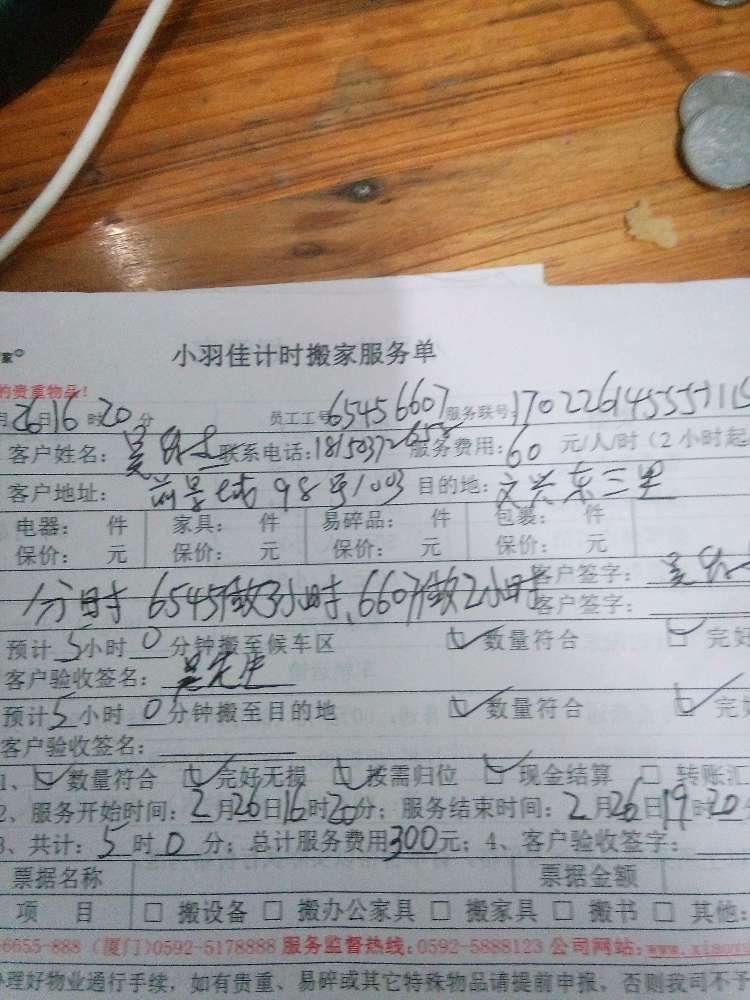 家
小羽佳计时搬家服务单
的贵重物品!
月26日16时20分 员工工号6545 6607 服务联号:17022614555711
客户姓名:吴先生 联系电话: 服务费用:60元/人/时(2小时起
客户地址: 98号1003 目的地:文兴东三里
电器: 件 家具: 件 易碎品: 件 包裹: 件
保价: 元 保价: 元 保价: 元 保价: 元
分时 6545做3小时、6607做2小时 客户签字:
客户签字:
预计5小时0分钟搬至候车区 数量符合 完好
客户验收签名:吴先生
预计5小时0分钟搬至目的地 数量符合 完好
客户验收签名:
1、数量符合 完好无损 按需归位 现金结算 转账汇
2、服务开始时间:2月26日16时20分;服务结束时间:2月26日19时20
3、共计:5时0分;总计服务费用300元;4、客户验收签字:
票据名称 票据金额
项 目 □搬设备 □搬办公家具 □搬家具 □搬书 □其他:
-6655-888(厦门)0592-5178888 服务监督热线:0592-5888123 公司网站:www.xiaoyu
办理好物业通行手续,如有贵重、易碎或其它特殊物品请提前申报,否则我司不予